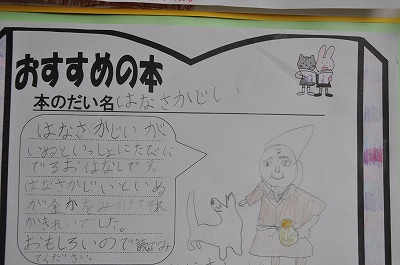 おすすめの本
本のだい名はなさかじいい
はなさかじいが
いぬといっしょにたびに
でるおはなしです。
はなさかじいといぬ
が金かをみつけてそれ
がきれいでした。
おもしろいので読んでみ
てください。